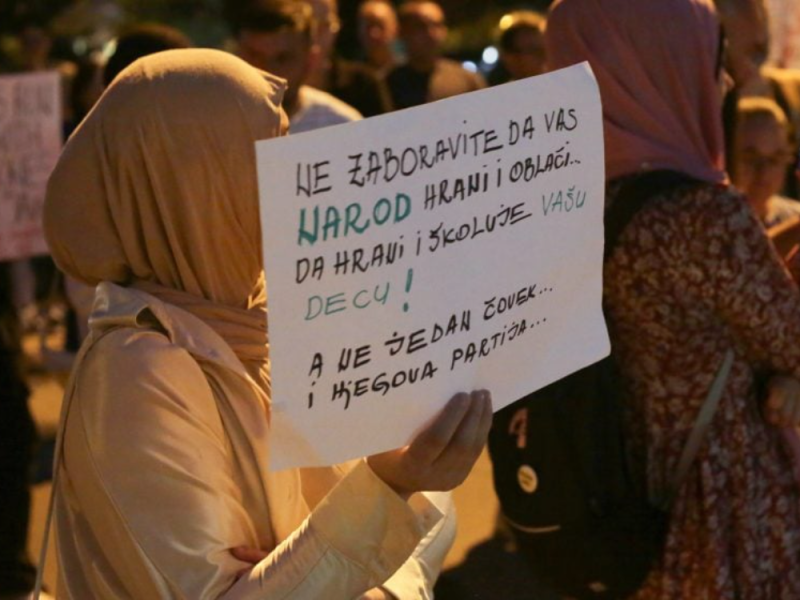 NE ZABORAVITE DA VAS
NAROD HRANI I OBLAČI..
DA HRANI I ŠKOLUJE VAŠU
DECU!
A NE JEDAN ČOVEK...
I NJEGOVA PARTIJA...